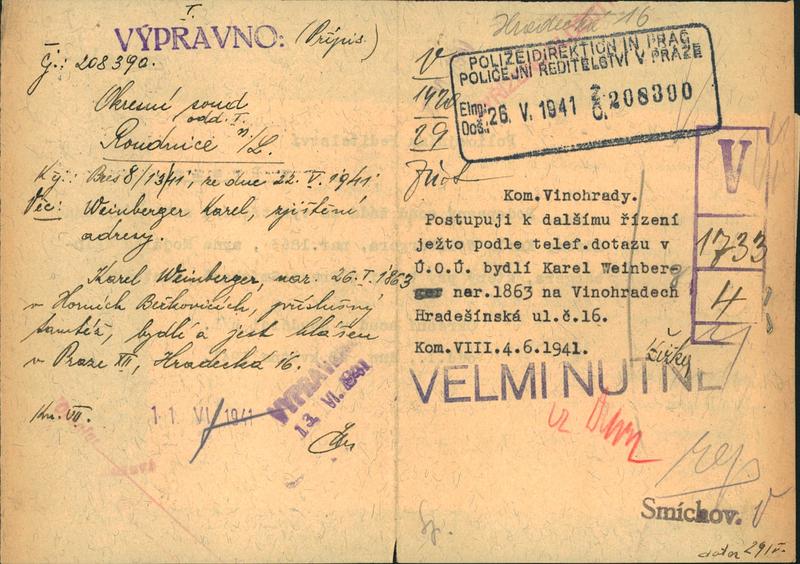 I.
VÝPRAVNO: (Přípis)
Čj.: 208390.
Okresní soud
odd. I.
Roudnice n/L.
Ky j.: 8/13/41, ze dne 22. V. 1941.
Věc: Weinberger Karel, zjištění
adresy.
Karel Weinberger, nar. 26. I. 1863
v Horních Beřkovicích, příslušný
tamtéž, bydlí a jest hlášen
v Praze XII, Hradecká 16.
11 VI 1941
VYPRAVENO
13. VI. 1941
Hradecká 16
V
1920
29
POLIZEIDIREKTION IN PRAG
POLICEJNÍ ŘEDITELSTVÍ V PRAZE
Eing.:
Doš.: 26. V. 1941 Z. Č. 208300
V
1733
4
Kom. Vinohrady.
Postupuji k dalšímu řízení
ježto podle telef.dotazu v
Ú.O.Ú. bydlí Karel Weinber-
ger nar.1863 na Vinohradech
Hradešínská ul.č.16.
Kom.VIII.4.6.1941.
VELMI NUTNÉ
Smíchov. V
29/V.